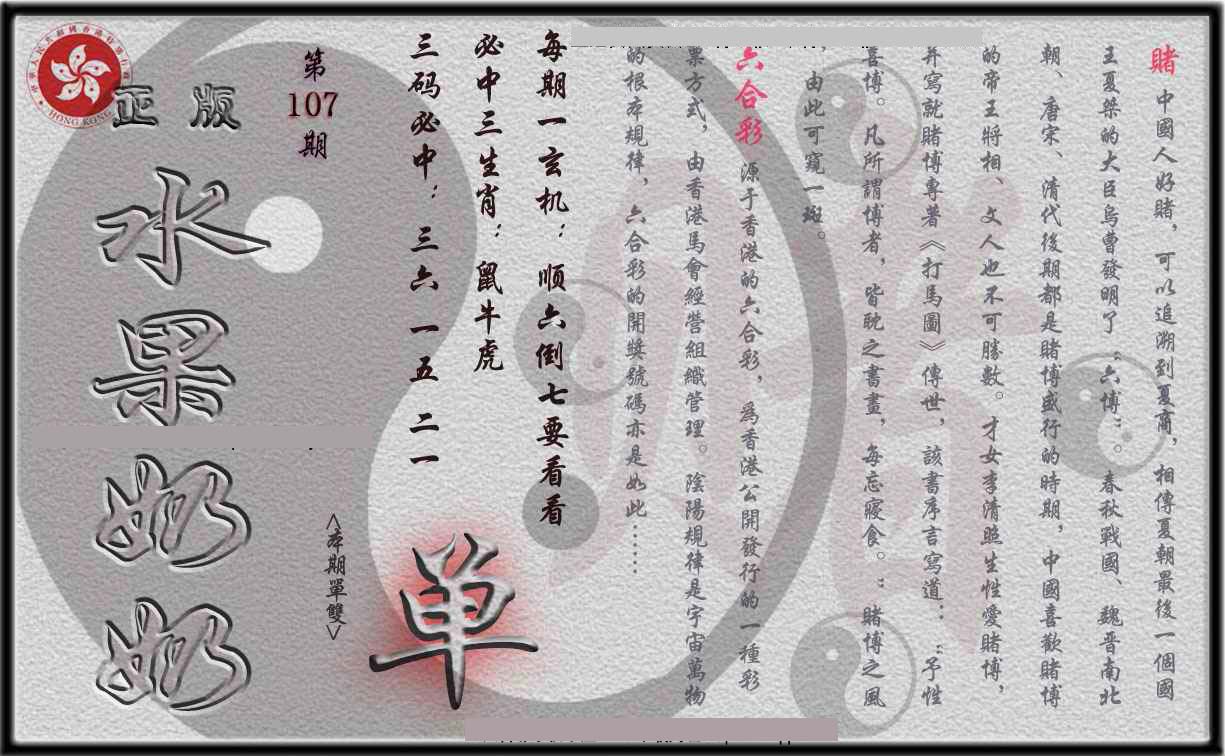 賭 中國人好賭，可以追溯到夏商，相傳夏朝最後一個國
王夏桀的大臣烏曹發明了“六博”。春秋戰國、魏晉南北
朝、唐宋、清代後期都是賭博盛行的時期，中國喜歡賭博
的帝王將相、文人也不可勝數。才女李清照生性愛賭博，
并寫就賭博專著《打馬圖》傳世，該書序言寫道：“予性
喜博。凡所謂博者，皆耽之晝，每忘寢食。”賭博之風
，由此可窺一斑。
六合彩 源于香港的六合彩，為香港公開發行的一種彩
票方式，由香港馬會經營組織管理。陰陽規律是宇宙萬物
的根本規律，六合彩的開獎號碼亦是如此……
每期一玄机：顺六倒七要看看
必中三生肖：鼠牛虎
三码必中：三六 一五 二一
单
<本期單雙>
第
107
期
正版
水果
奶奶
HONG KONG